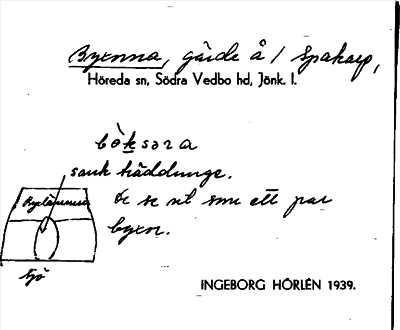 Byxnna, gärde å / Spakarp,
Höreda sn, Södra Vedbo hd, Jönk. l.
bòksəra
sank häddunge.
de se ut som ett par
byxn.
sjö
INGEBORG HÖRLÉN 1939.